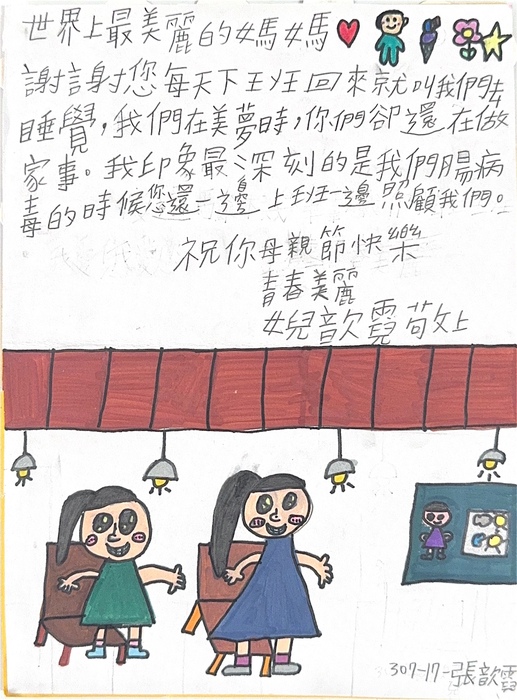 世界上最美麗的媽媽
謝謝您每天下班回來就叫我們去
睡覺,我們在美夢時,你們卻還在做
家事。我印象最深刻的是我們腸病
毒的時候您還一邊上班一邊照顧我們。
祝你母親節快樂
青春美麗
女兒歆霓敬上
307-17-張歆霓